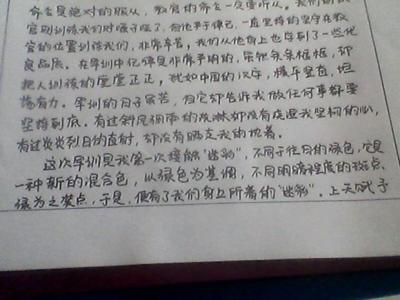 命令是绝对的服从,教官的命令一定要听从。我们的教
官训练我们时嗓子哑了,但他严于律己,一直坚持的坚守在教
官的位置训练我们,非常辛苦。我们从他身上也学到了一些优
良品质。在军训中纪律是非常严明的,条条框框,却
把人训练的堂堂正正,犹如中国的汉字,横平竖直,坦
荡有力。军训的日子虽苦,但它却告诉我做任何事都要
坚持到底。有过斜风细雨的洗淋却没有浇湿我坚韧的心,
有过炎炎烈日的直射,却没有晒去我的执着。
这次军训是我第一次接触“迷彩”,不同于往日的绿色,它是
一种新的混合色,以绿色为基调,不同明暗程度的斑点、
绿为之装点,于是,便有了我们身上所着的“迷彩”。上天赋予